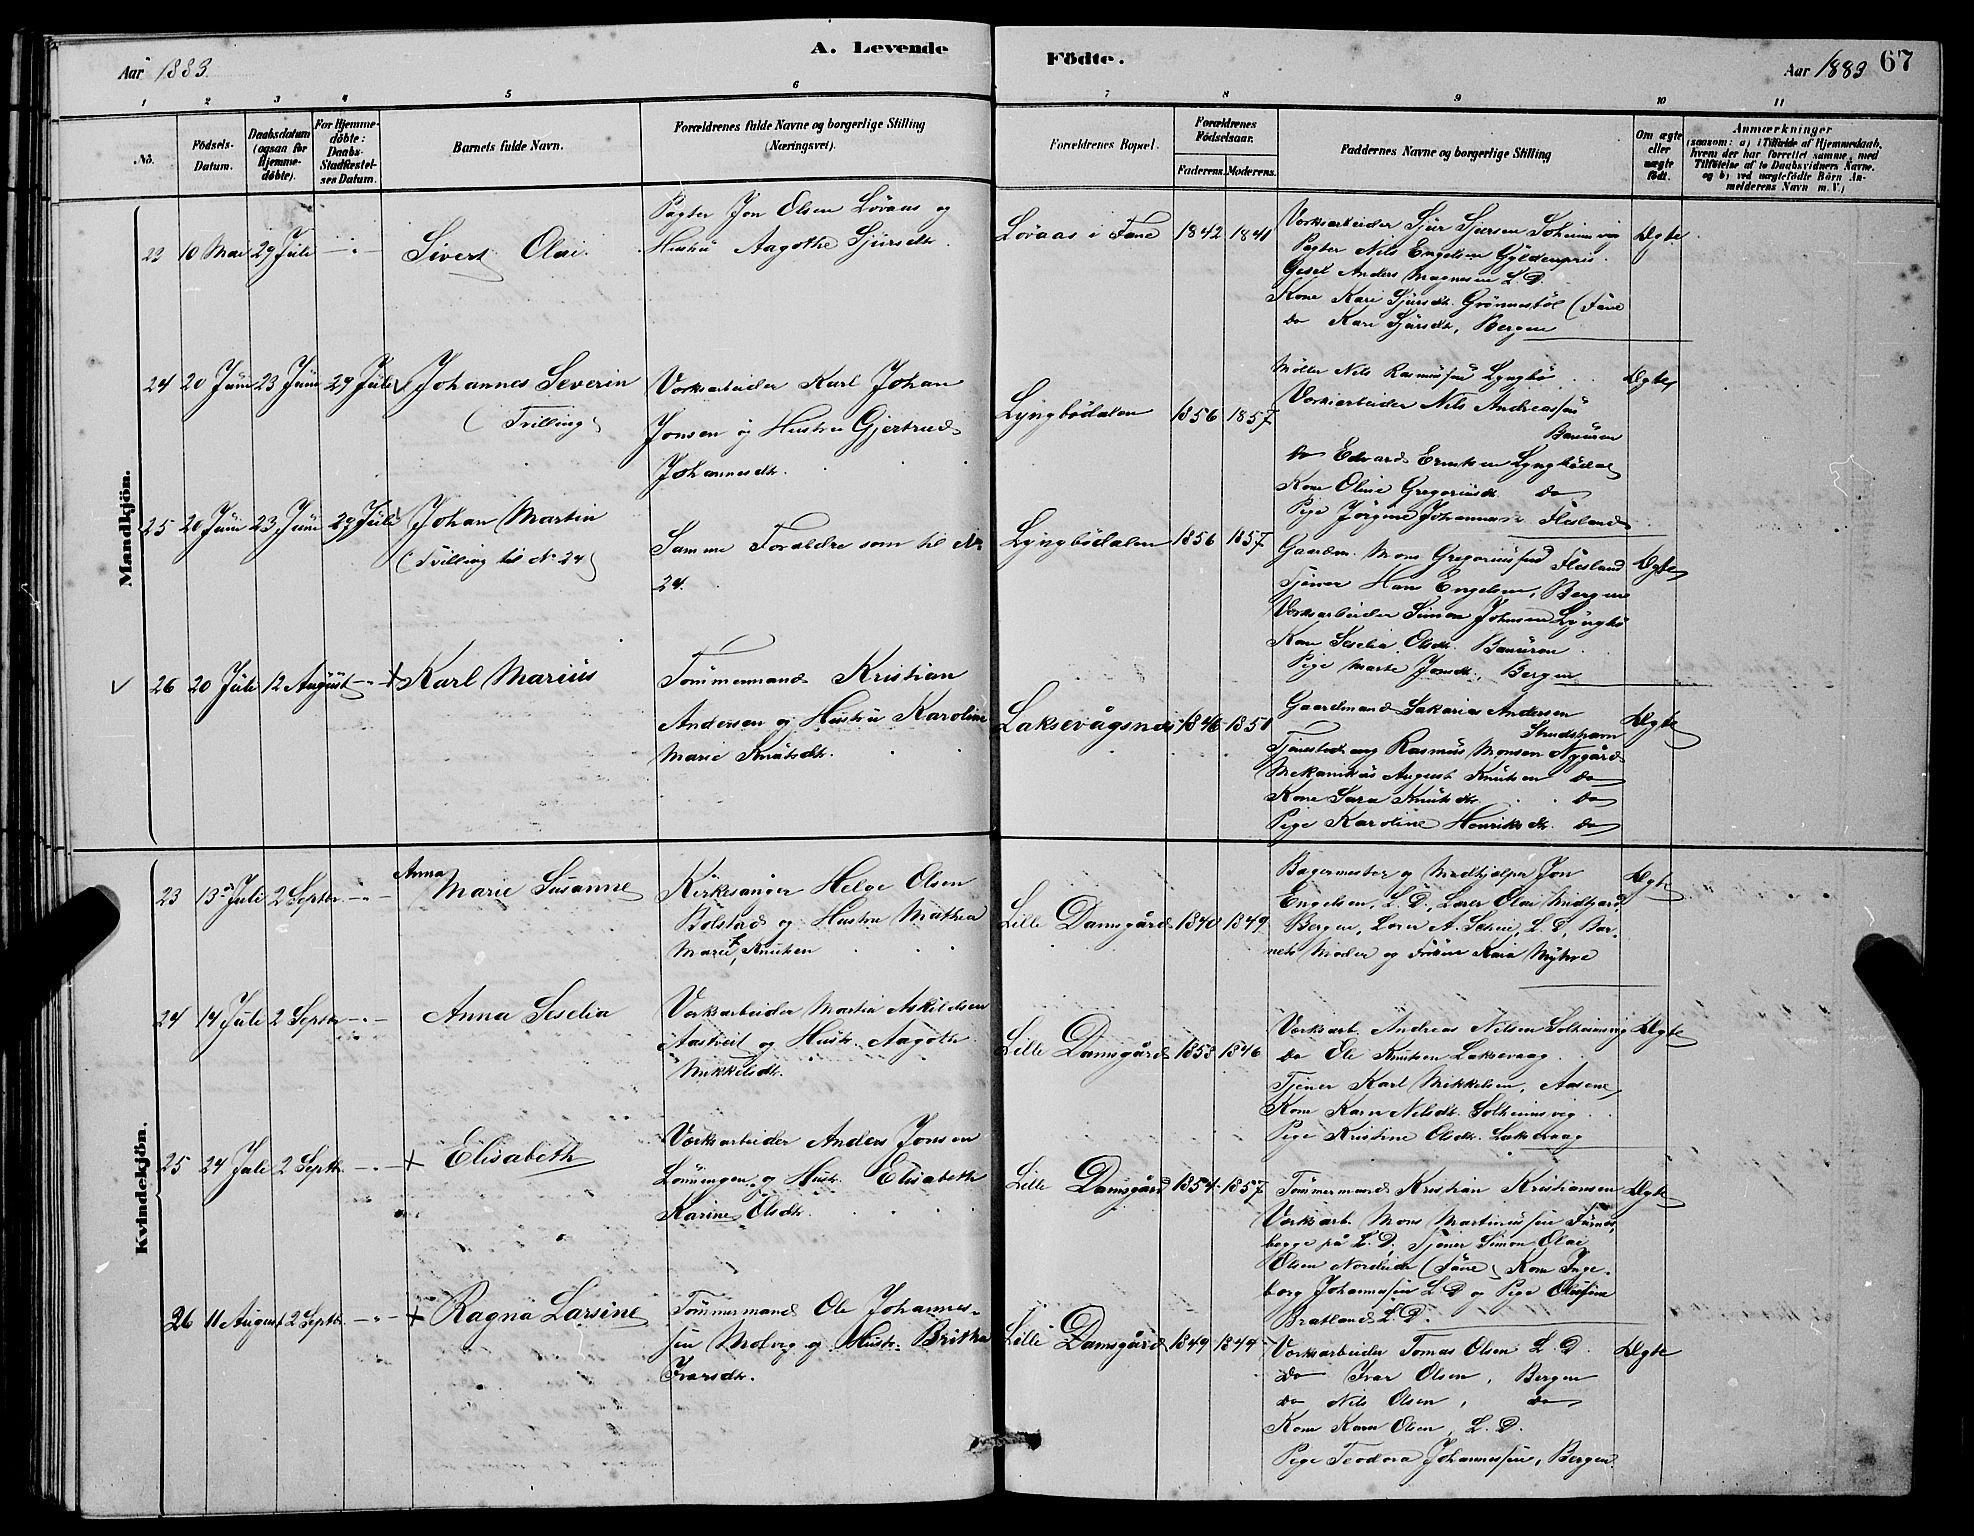 A. Levende Födte.
Aar 1883.
Aar 1883
67
1 2 3 4 5 6 7 8 9 10 11
No.
Födsels-Datum.
Daabsdatum (ogsaa for Hjemme-döbte).
For Hjemme-döbte: Daabs-Stadfæstel-ses Datum.
Barnets fulde Navn.
Forældrenes fulde Navne og borgerlige Stilling (Næringsvei).
Forældrenes Bopæl.
Forældrenes Födselsaar.
Faderens. Moderens.
Faddernes Navne og borgerlige Stilling
Om ægte eller uægte födt.
Anmærkninger
(saasom: a) i Tilfælde af Hjemmedaab,
hvem der har forrettet samme, med
Tilföielse af to Daabsvidners Navne,
og b) ved uægtefödte Börn An-
melderens Navn m. V.)
Mandkjön.
23 10 Mai 29 Juli - " - Sivert Olai.
Pagter Jon Olsen Lövaas og
Hustru Aagothe Sjursdtr.
Lövaas i Fane 1842 1841
Værksarbeider Sjur Sjursen Solheimsvig
Pagter Nils Engelsen Gyldenpris.
Gesel Anders Magnesen L. D.
Kone Kari Sjursdtr. Grönnestöl (Fane
Do Kari Sjursdtr, Bergen
Ægte
24 20 Juni 23 Juni 29 Juli Johannes Severin
(Tvilling)
Værksarbeider Karl Johan
Jonsen og Hustru Gjertrud
Johannesdtr.
Lyngbödalen 1856 1857
Möller Nils Rasmussen Lyngbö
Værksarbeider Nils Andreassen
Banuren
Do Edvard Lyngbödal
Kone Oline Gregoriusdtr. Do
Pige Jörgine Johannesdr. Flesland
Ægte
25 20 Juni 23 Juni 29 Juli Johan Martin
(Tvilling til No 24)
Samme Forældre som til No
24.
Lyngbödalen 1856 1857
Gaardm. Mons Gregoriussen Flesland
Tjener Hans Engelsen, Bergen
Værksarbeider Simon Johnsen Lyngbö
Kone Seselia Olsdtr. Banuren
Pige Marte Jonsdtr., Bergen
Ægte
26 20 Juli 12 August - " - Karl Marius
Tömmermand Kristian
Andersen og Hustru Karoline
Marie Knutsdtr.
Laksevågsnes 1846 1851
Gaardmand Sakarias Andersen
Skudshavn
Rasmus Monsen Nygård
Mekanikus August Knutsen Do
Kone Sara Knutsdtr. Do
Pige Karoline Henriksdtr. Do
Ægte
Kvindekjön.
23 13 Juli 2 Septbr - " - Anna Marie Susanne
Kirkesanger Helge Olsen
Bolstad og Hustru Mathea
Marie F. Knutsen
Lille Damsgård 1840 1849
Bagermester og Medhjælper Jon
Engelsen, L. D., Lærer Olai
Bergen, Lærer A. L. D, Bar-
nets Moder og Fröken Kaia Myhre
Ægte
24 14 Juli 2 Septbr - " - Anna Seselia
Værksarbeider Martin Askildsen
Aastveit og Hustr. Aagothe
Mikkelsdtr.
Lille Damsgård 1853 1846
Værksarb. Andreas Nilsen Solheimsvig
Do Ole Knutsen Laksevaag
Tjener Karl Mikkelsen, Aasene
Kone Kari Nilsdtr. Solheimsvig
Pige Kristine Olsdtr. Laksevaag
Ægte
25 24 Juli 2 Septbr. - " - Elisabeth
Værksarbeider Anders Jonsen
Lönningen og Hustr. Elisabeth
Karine Olsdtr.
Lille Damsgård 1854 1857
Tömmermand Kristian Kristiansen
Værksarb. Mons Martinussen
begge på L. D, Tjener Simon Olai
Olsen Nordeide (Fane) Kone Inge-
borg Johannessen L D og Pige
Bratland L. D.
Ægte
26 11 August 2 Septbr. - " - Ragna Larsine
Tömmermand Ole Johannes-
sen Moberg og Hustr. Britha
Ivarsdtr.
Lille Damsgård 1849 1844
Værksarbeider Tomas Olsen L. D.
Do Ivar Olsen, Bergen
Do Nils Olsen, Do
Kone Karen Olsen, L. D.
Pige Teodora Johannessen, Bergen.
Ægte